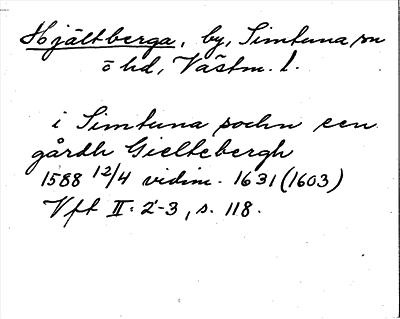 Hjältberga, by, Simtuna sn
ö hd, Västm. l.
i Simtuna sochn een
gårdh Gieltebergh
1588 12/4 vidim. 1631 (1603)
Vft II: 2-3, s. 118.